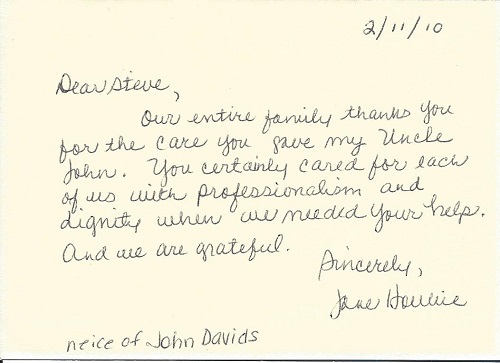 2/11/10
Dear Steve,
Our entire family thanks you
for the care you gave my Uncle
John. You certainly cared for each
of us with professionalism and
dignity when we needed your help.
And we are grateful.
Sincerely,
Jane
neice of John Davids